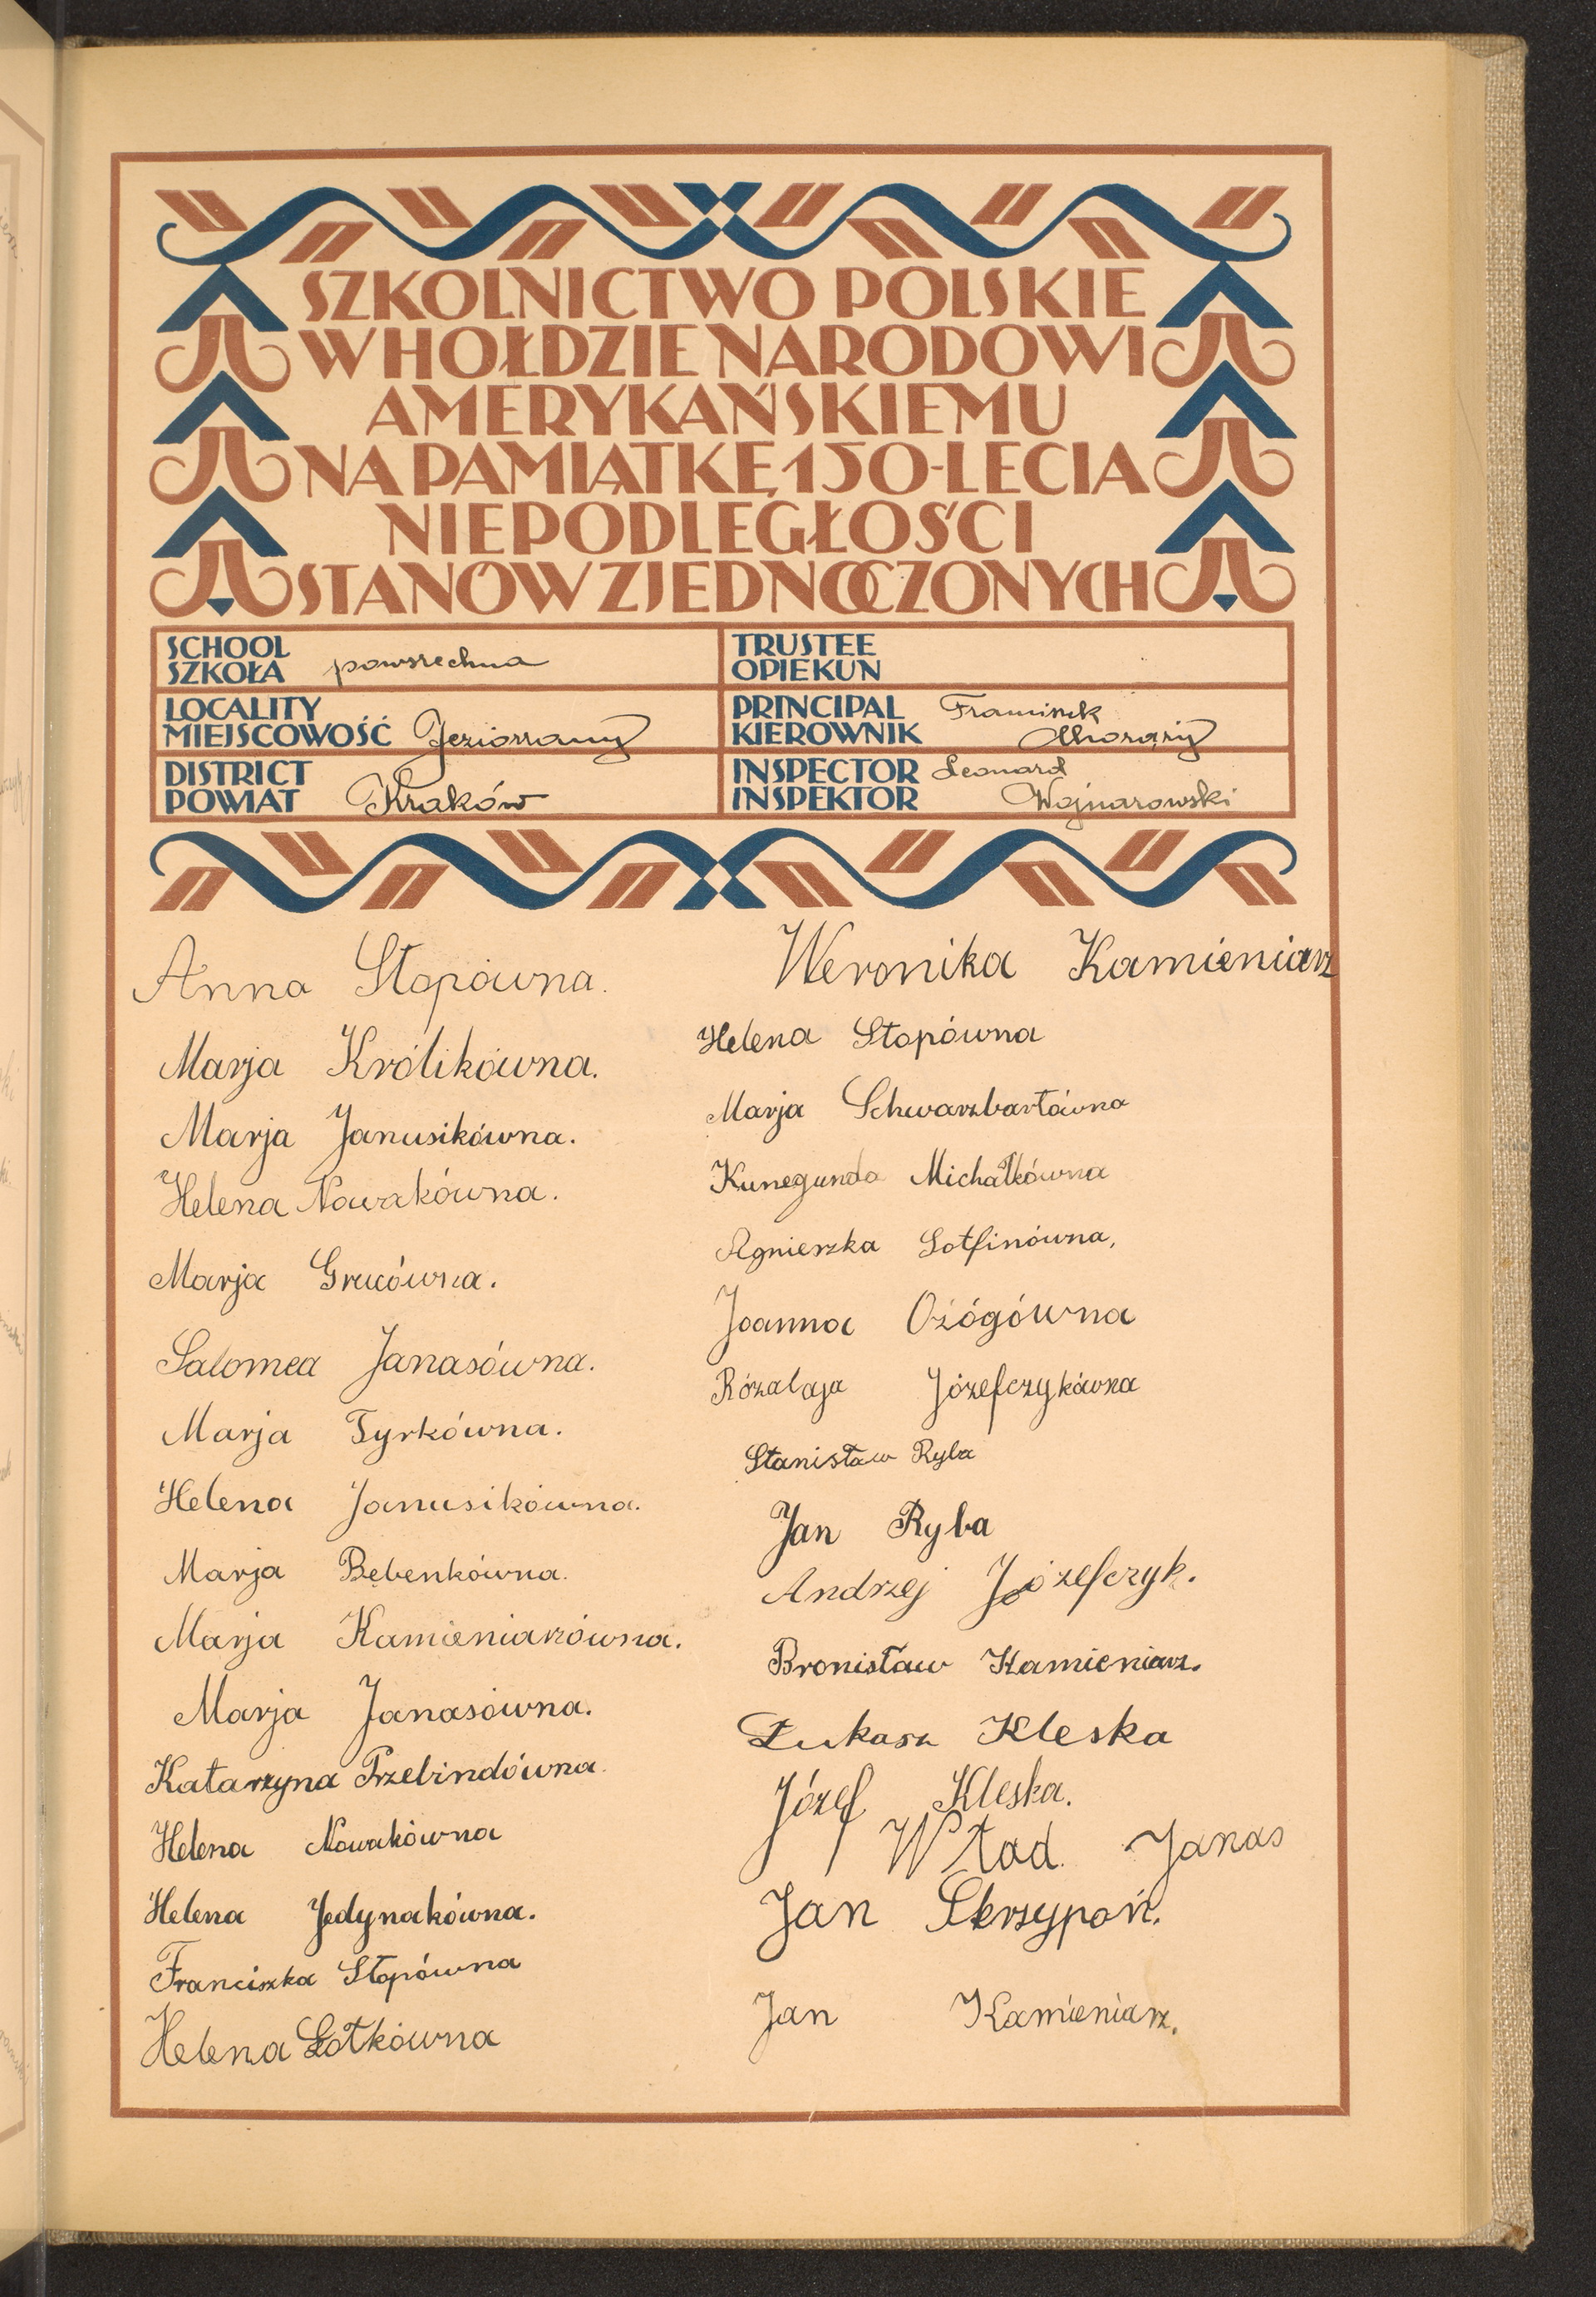 SZKOLNICTWO POLSKIE
W HOŁDZIE NARODOWI
AMERYKAŃSKIEMU
NA PAMIĄTKĘ 150-LECIA
NIEPODLEGŁOŚCI
STANÓW ZJEDNOCZONYCH
SCHOOL
SZKOŁA powszechna
TRUSTEE
OPIEKUN
LOCALITY
MIEJSCOWOŚĆ Jeziorzany
PRINCIPAL Franciszek
KIEROWNIK Chorąży
DISTRICT
POWIAT Kraków
INSPECTOR Leonard
INSPEKTOR Wojnarowski
Anna Stopówna.
Marja Królikówna.
Marja Janusikówna.
Helena Nowakówna.
Marja Grucówna.
Salomea Janasówna.
Marja Tyrkówna.
Helena Janusikówna.
Marja Bębenkówna.
Marja Kamieniarzówna.
Marja Janasówna.
Katarzyna Przebindówna.
Helena Nowakówna
Helena Jedynakówna.
Franciszka Stopówna
Helena Łotkówna
Weronika Kamieniarz
Helena Stopówna
Marja Schwarzbartówna
Kunegunda Michałkówna
Agnieszka Sotfinówna,
Joanna Ożógówna
Rózalaja Józefczykówna
Stanisław Ryba
Jan Ryba
Andrzej Józefczyk.
Bronisław Kamieniarz.
Łukasz Kleska
Józef Kleska.
Wład. Janas
Jan Skrzypoń.
Jan Kamieniarz.